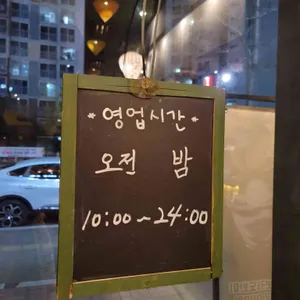 * 영업시간 *
오전 밤
10:00~24:00